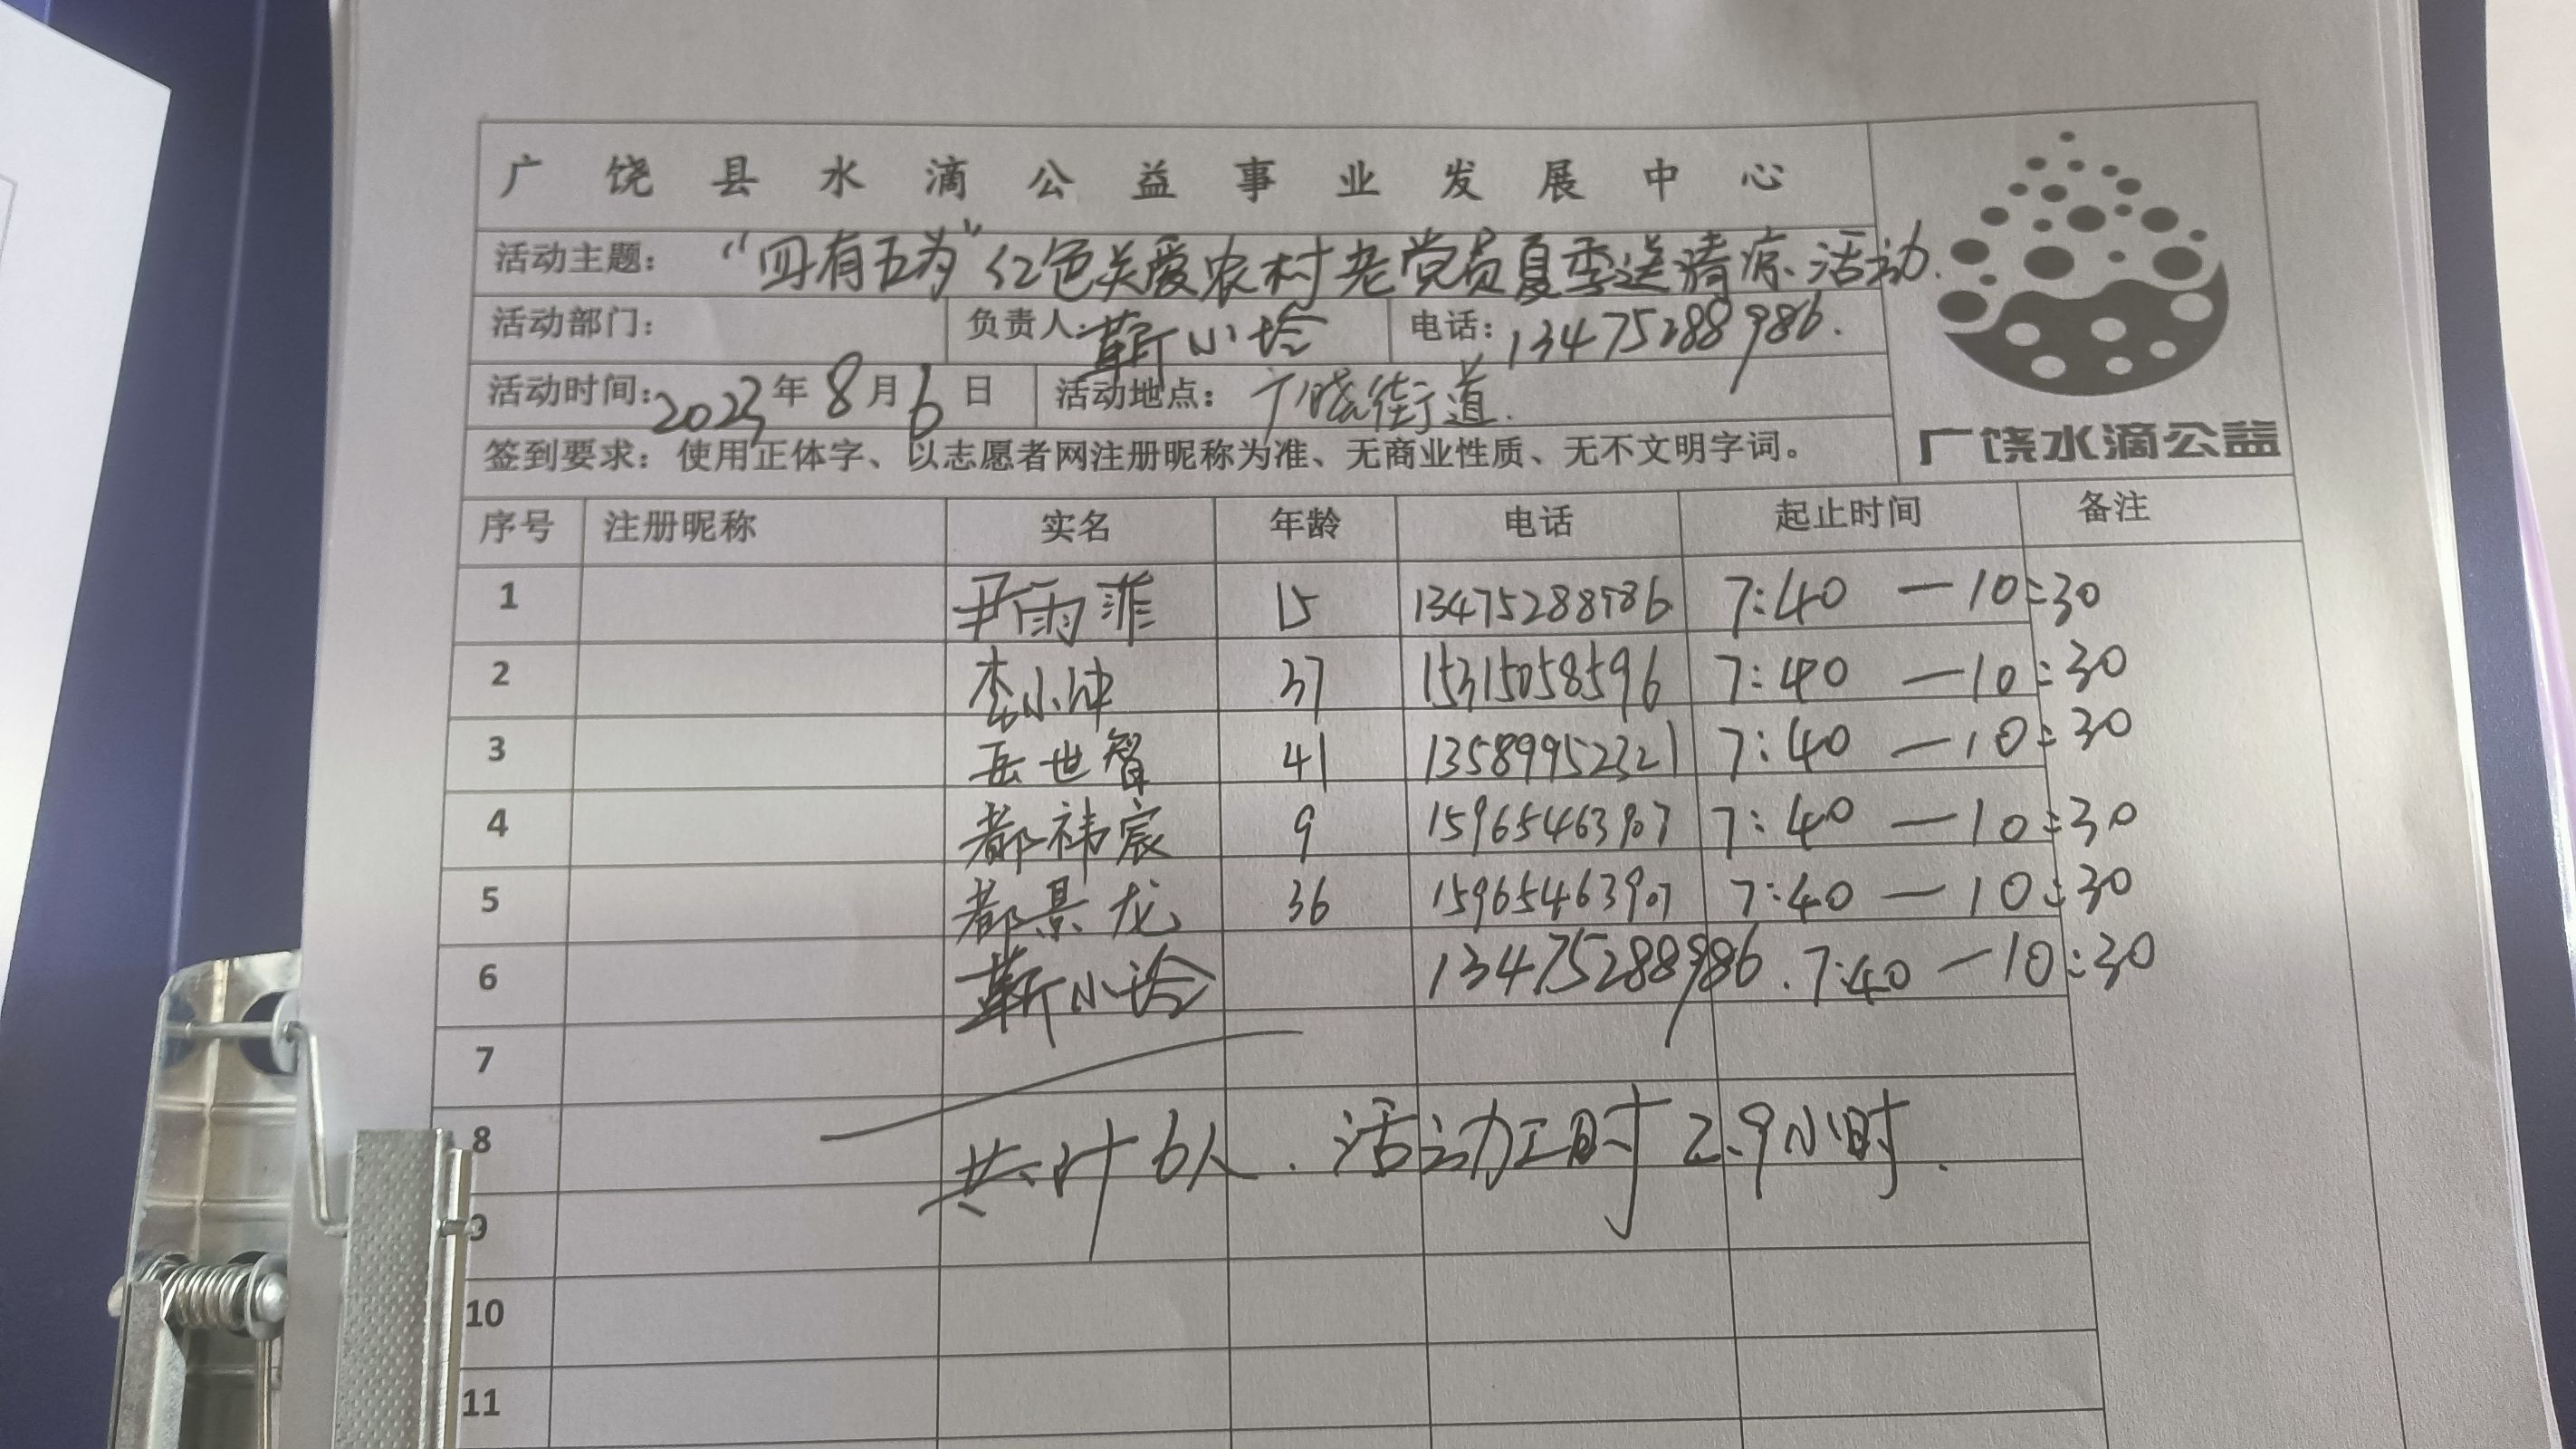 广饶县水滴公益事业发展中心
活动主题："四有五为"红色关爱农村老党员夏季送清凉活动.
活动部门： 负责人: 靳小玲 电话：13475288986.
活动时间：2023年8月6日 活动地点：广饶街道.
签到要求：使用正体字、以志愿者网注册昵称为准、无商业性质、无不文明字词。
广饶水滴公益
序号 注册昵称 实名 年龄 电话 起止时间 备注
1 尹雨菲 15 13475288986 7:40 — 10:30
2 李小冲 37 15315058596 7:40 — 10:30
3 岳世智 41 13589952321 7:40 — 10:30
4 都祎宸 9 15965463907 7:40 — 10:30
5 都景龙 36 15965463907 7:40 — 10:30
6 靳小玲 13475288986. 7:40 — 10:30
7
8 共计6人. 活动工时2.9小时.
9
10
11